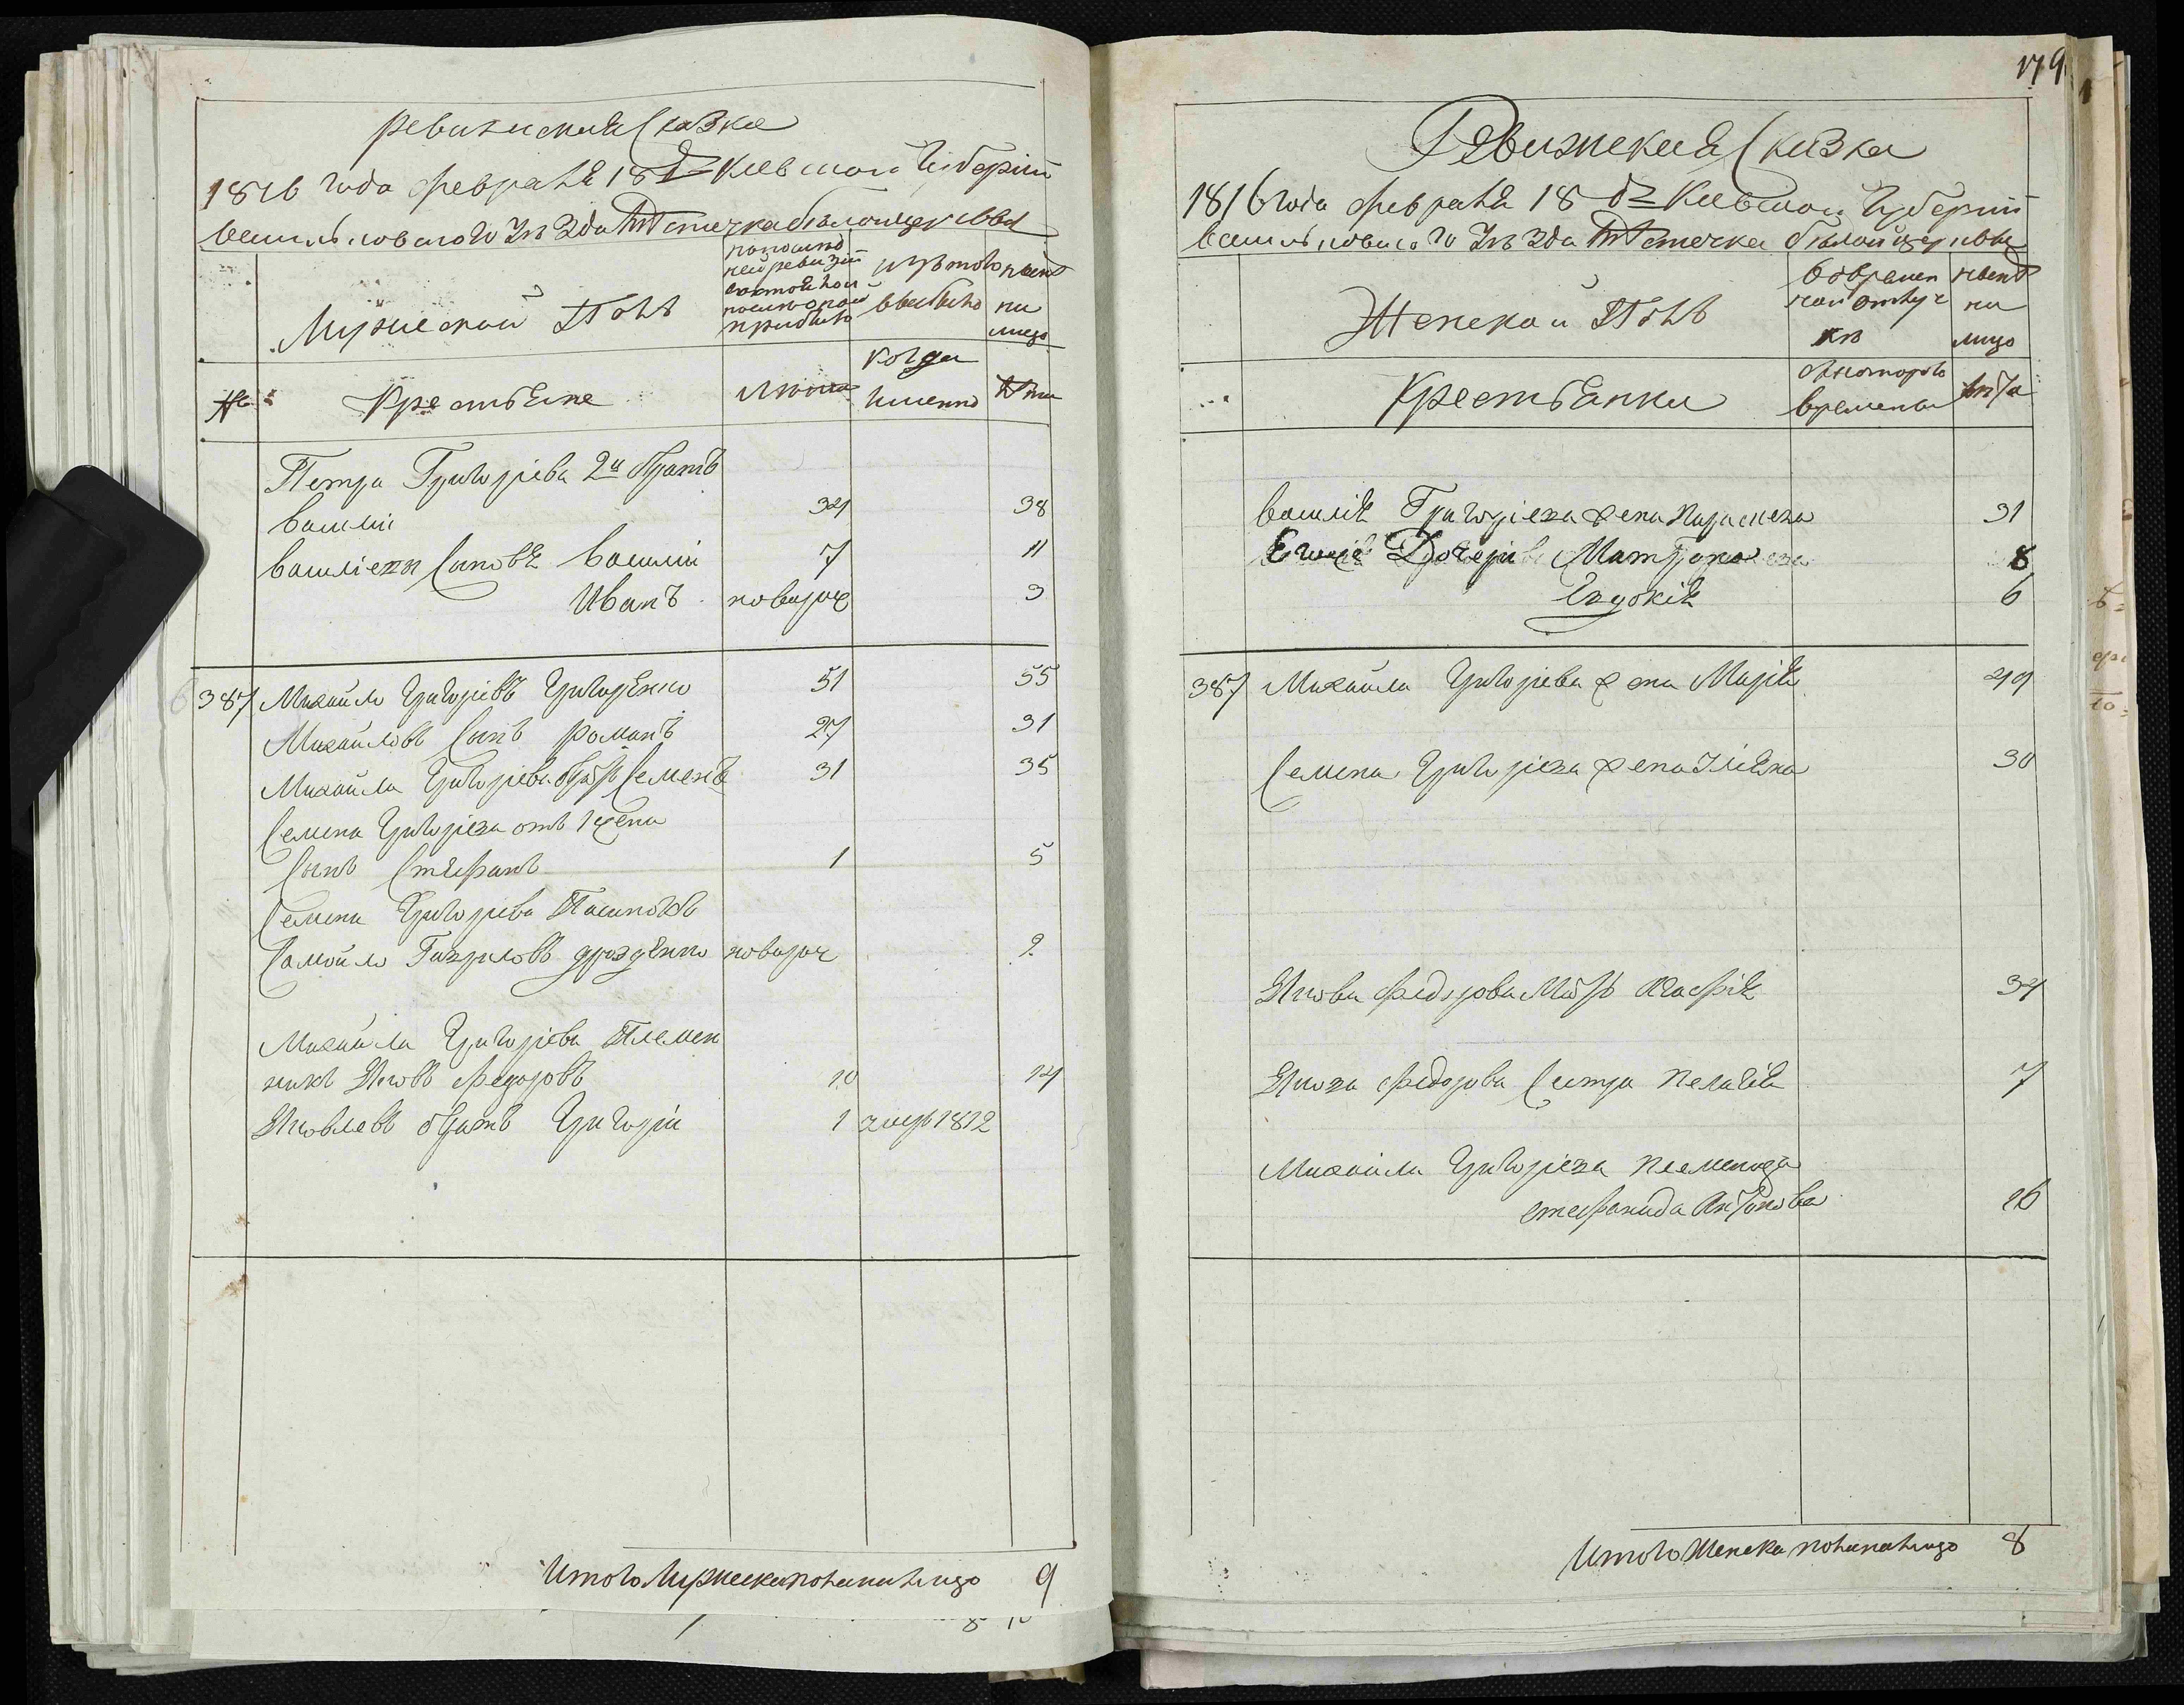 Ревижская Сказка
1816 года февраля 18 дня Киевской Губернии
васильковского уезда Местечка белой церквы
Мужеской Полъ
по последней ревизии состояло и после оной прибыло
изъ того выбыло
ныне на лицо
№
Крестьяне
Лета
когда именно
Лета
Петра Григориева 2й братъ
Василий 34 38
Василиевы Сыновя Василий 7 11
Иванъ новорож 3
387 Михайло Григориевъ Григоренко 51 55
Михайловъ Сынъ романъ 27 31
Михайла Григориева братъ Семенъ 31 35
Семена Григориева отъ 1 жены
Сынъ Стефанъ 1 5
Семена Григориева Пасынокъ
Самойло Гавриловъ дрозденко новорож 2
Михайла Григориева Племен
никъ Яковъ федоровъ 10 14
Яковлевъ братъ Григорий 1 умер 1812
Итого Мужеска пола на лицо 9
179
Ревижская Сказка
1816 года февраля 18 дня Киевской Губернии
васильковского уезда Местечка белой церквы
Женской Полъ
во временной отлучке
ныне на лицо
Крестьянки
с которого времени
лета
василия Григориева жена Параскева 31
Его же Дочери Матрона 8
Евдокия 6
387 Михайла Григориева жена Мария 49
Семена Григориева жена Улияна 30
Якова федорова Матер Агафия 34
Якова федорова Сестра Пелагия 7
Михайла Григориева племенница
стефанида Антонова 16
Итого Женска пола на лицо 8